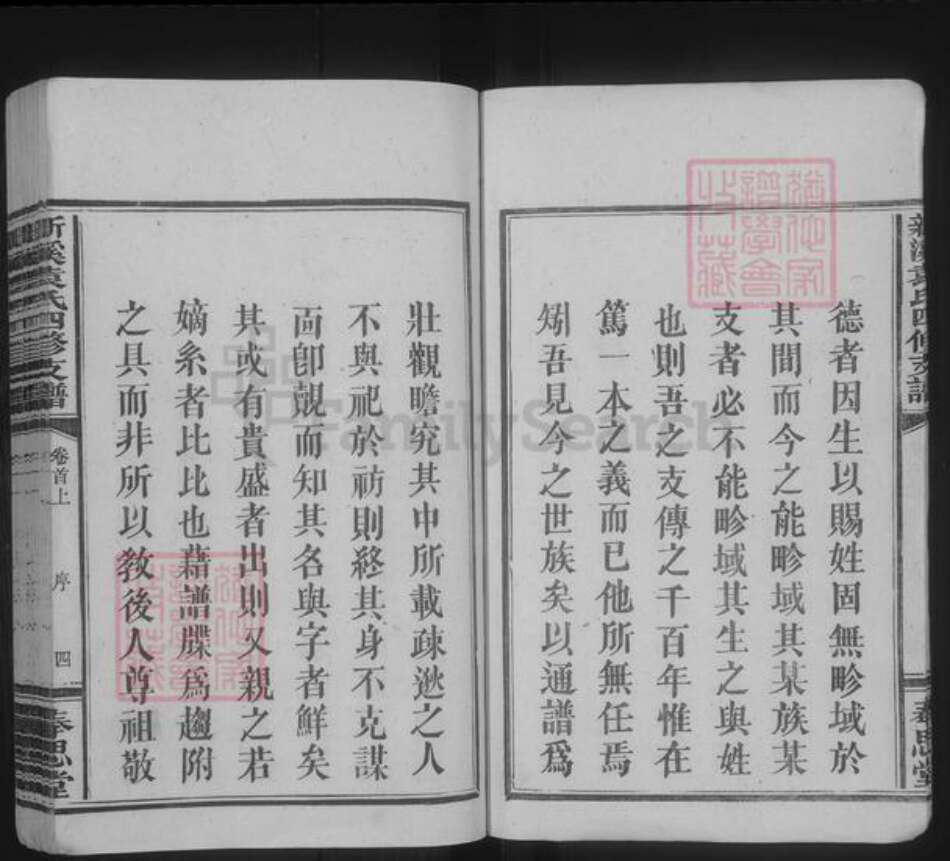 德者因生以賜姓固無畛域於
其間而今之能畛域其某族某
支者必不能畛域其生之與姓
也則吾之支傳之千百年惟在
篤一本之義而已他所無任焉
矧吾見今之世族矣以通譜爲
壯觀瞻究其中所載疎逖之人
不與祀於祊則終其身不克謀
面卽覿而知其名與字者鮮矣
其或有貴盛者出則又親之若
嫡系者比比也藉譜牒爲趨附
之具而非所以敎後人尊祖敬
新溪袁氏四修支譜
卷首上
序
四
奉思堂
新溪袁氏四修支譜
奉思堂
FamilySearch
猶他家譜學會收藏
猶他家譜學會收藏